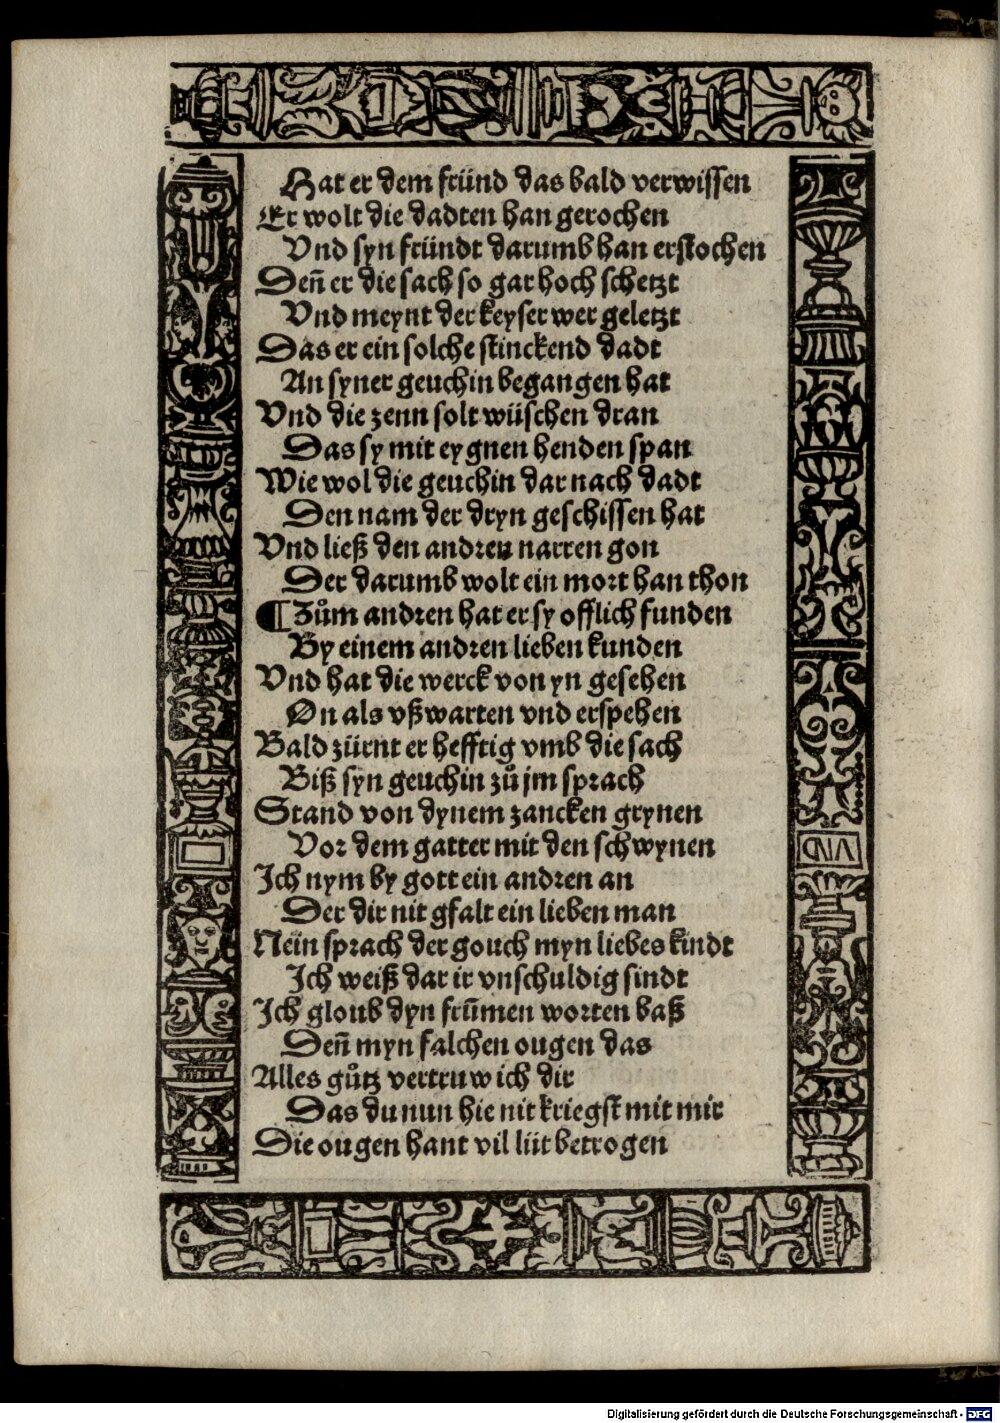 Hat er dem fründ das bald verwissen
Er wolt die dadten han gerochen
Vnd syn fründt darumb han erstochen
Deñ er die sach so gar hoch schetzt
Vnd meynt der keyser wer geletzt
Das er ein solche stinckend dadt
An syner geuchin begangen hat
Vnd die zenn solt wüschen dran
Das sy mit eygnen henden span
Wie wol die geuchin dar nach dadt
Den nam der dryn geschissen hat
Vnd ließ den andren narren gon
Der darumb wolt ein mort han thon
¶Zům andren hat er sy offlich funden
By einem andren lieben kunden
Vnd hat die werck von yn gesehen
On als vßwarten vnd erspehen
Bald zürnt er hefftig vmb die sach
Biß syn geuchin zů jm sprach
Stand von dynem zancken grynen
Vor dem gatter mit den schwynen
Ich nym by gott ein andren an
Der dir nit gfalt ein lieben man
Nein sprach der gouch myn liebes kindt
Ich weiß dar ir vnschuldig sindt
Ich gloub dyn frūmen worten baß
Deñ myn falchen ougen das
Alles gůtz vertruw ich dir
Das du nun hie nit kriegst mit mir
Die ougen hant vil lüt betrogen
CNA
Digitalisierung gefördert durch die Deutsche Forschungsgemeinschaft - DFG